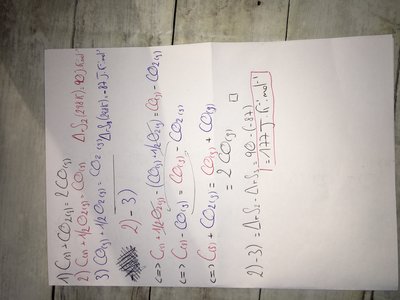 1) C(s) + CO2(g) = 2 CO(g)
2) C(s) + 1/2 O2(g) = CO(g) ΔrS2(298K): 90 J.K.mol
3) CO(g) + 1/2 O2(g) = CO2(g) ΔrS3(298K): -87 J.K.mol-1
2) - 3)
<=> C(s) + 1/2 O2(g) - (CO(g) + 1/2 O2(g)) = CO(g) - CO2(g)
<=> C(s) - CO(g) = CO(g) - CO2(g)
<=> C(s) + CO2(g) = CO(g) + CO(g)
= 2 CO(g)
2) - 3) = ΔrS2 - ΔrS3 = 90 - (-87)
= 177 J.K-1.mol-1